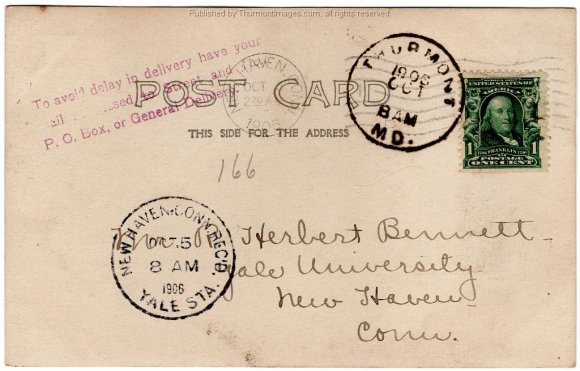 Published by Thurmontimages.com, all rights reserved
To avoid delay in delivery have your
all Street, and
P. O. Box, or General Delivery.
POST CARD
THIS SIDE FOR THE ADDRESS
NEW HAVEN
OCT
1906
THURMONT
1906
OCT
8AM
MD.
UNITED STATES OF
AMERICA
1 1
FRANKLIN
POSTAGE
ONE CENT
166
NEW HAVEN. CONN. REC'D.
OCT 5
8 AM
1906
YALE STA.
Herbert Bennett
Yale University
New Haven
Conn.